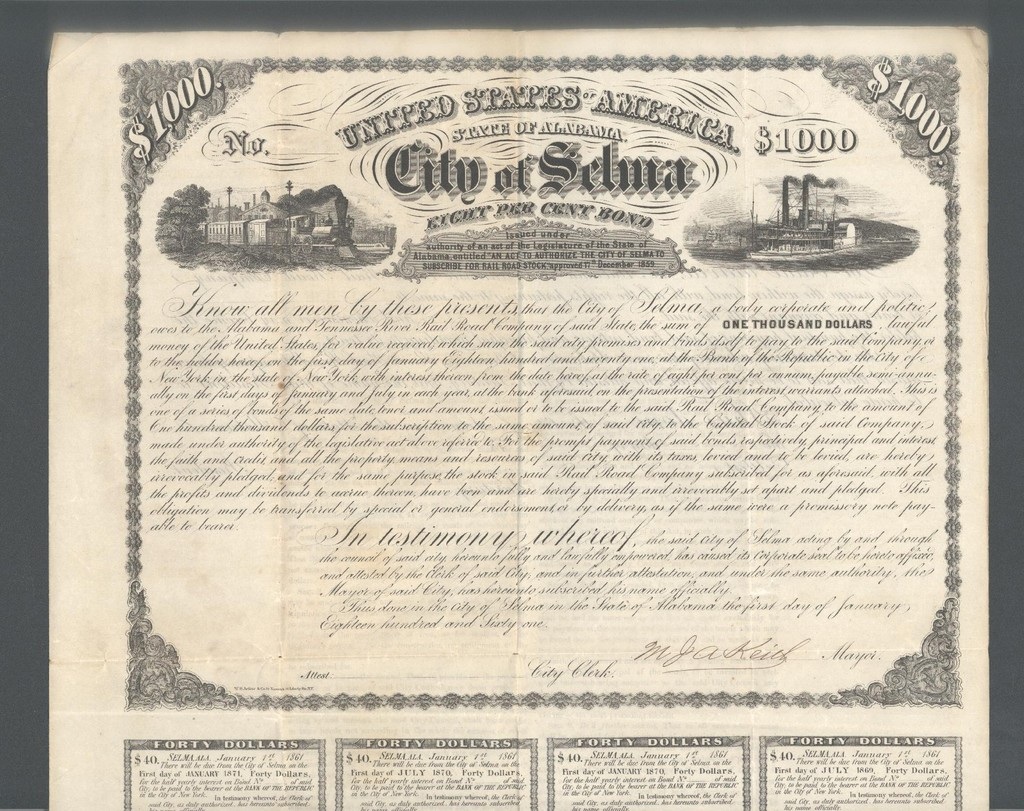 $1000.
$1000.
No.
UNITED STATES OF AMERICA.
$1000
STATE OF ALABAMA.
City of Selma
EIGHT PER CENT BOND
Issued under
authority of an act of the Legislature of the State of
Alabama, entitled "AN ACT TO AUTHORIZE THE CITY OF SELMA TO
SUBSCRIBE FOR RAIL ROAD STOCK" approved 1st December 1859.
Know all men by these presents, that the City of Selma, a body corporate and politic,
owes to the Alabama and Tennessee River Rail Road Company of said State, the sum of ONE THOUSAND DOLLARS, lawful
money of the United States, for value received, which sum the said city promises and binds itself to pay to the said Company, or
to the holder hereof, on the first day of January Eighteen hundred and seventy one, at the Bank of the Republic in the City of
New York, in the state of New York, with interest thereon from the date hereof, at the rate of eight per cent per annum, payable semi-annu-
ally on the first days of January and July in each year, at the bank aforesaid, on the presentation of the interest warrants attached. This is
one of a series of bonds of the same date, tenor and amount, issued or to be issued to the said Rail Road Company to the amount of
One hundred thousand dollars, for the subscription to the same amount of said city to the Capital Stock of said Company,
made under authority of the legislative act above refered to. For the prompt payment of said bonds respectively, principal and interest
the faith and credit, and all the property, means and resources of said City, with its taxes, levied and to be levied, are hereby
irrevocably pledged, and for the same purpose, the stock in said Rail Road Company subscribed for as aforesaid, with all
the profits and dividends to accrue thereon, have been and are hereby specially and irrevocably set apart and pledged. This
obligation may be transferred by special or general endorsement, or by delivery, as if the same were a promissory note pay-
able to bearer.
In testimony whereof, the said City of Selma acting by and through
the council of said city hereunto fully and lawfully empowered, has caused its Corporate seal, to be hereto affixed,
and attested by the Clerk of said City, and in further attestation, and under the same authority, the
Mayor of said City, has hereunto subscribed his name officially.
Thus done in the City of Selma in the State of Alabama the first day of January,
Eighteen hundred and Sixty one.
M J A Keith Mayor.
Attest City Clerk.
FORTY DOLLARS FORTY DOLLARS FORTY DOLLARS FORTY DOLLARS
$40. SELMA, ALA. January 1st 1861
There will be due from the City of Selma on the
First day of JANUARY 1871, Forty Dollars,
for the half yearly interest on Bond No of said
City, to be paid to the bearer at the BANK OF THE REPUBLIC
in the City of New York.
In testimony whereof, the Clerk of
said City, as duly authorized, has hereunto subscribed
his name officially.
$40. SELMA, ALA. January 1st 1861
There will be due from the City of Selma on the
First day of JULY 1870, Forty Dollars,
for the half yearly interest on Bond No of said
City, to be paid to the bearer at the BANK OF THE REPUBLIC
in the City of New York.
In testimony whereof, the Clerk of
said City, as duly authorized, has hereunto subscribed
his name officially.
$40. SELMA, ALA. January 1st 1861
There will be due from the City of Selma on the
First day of JANUARY 1870, Forty Dollars,
for the half yearly interest on Bond No of said
City, to be paid to the bearer at the BANK OF THE REPUBLIC
in the City of New York.
In testimony whereof, the Clerk of
said City, as duly authorized, has hereunto subscribed
his name officially.
$40. SELMA, ALA. January 1st 1861
There will be due from the City of Selma on the
First day of JULY 1869, Forty Dollars,
for the half yearly interest on Bond No of said
City, to be paid to the bearer at the BANK OF THE REPUBLIC
in the City of New York.
In testimony whereof, the Clerk of
said City, as duly authorized, has hereunto subscribed
his name officially.